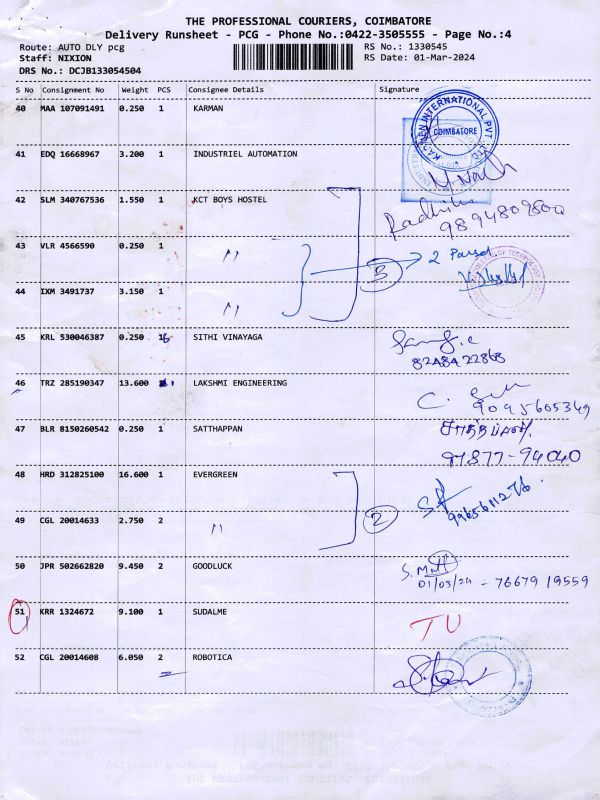 THE PROFESSIONAL COURIERS, COIMBATORE
Delivery Runsheet - PCG - Phone No.:0422-3505555 - Page No.:4
Route: AUTO DLY pcg RS No.: 1330545
Staff: NIXION RS Date: 01-Mar-2024
DRS No.: DCJB133054504
S No Consignment No Weight PCS Consignee Details Signature
40 MAA 107091491 0.250 1 KARMAN
COIMBATORE
41 EDQ 16668967 3.200 1 INDUSTRIEL AUTOMATION
42 SLM 340767536 1.550 1 KCT BOYS HOSTEL
9894809800
43 VLR 4566590 0.250 1 〃
3 2
44 IXM 3491737 3.150 1 〃
45 KRL 530046387 0.250 SITHI VINAYAGA
46 TRZ 285190347 13.600 LAKSHMI ENGINEERING
9095605349
47 BLR 8150260542 0.250 1 SATTHAPPAN
97877-94040
48 HRD 312825100 16.600 1 EVERGREEN
49 CGL 20014633 2.750 2 〃
2
50 JPR 502662820 9.450 2 GOODLUCK
01/03/24 - 76679 19559
51 KRR 1324672 9.100 1 SUDALME
TU
52 CGL 20014608 6.050 2 ROBOTICA